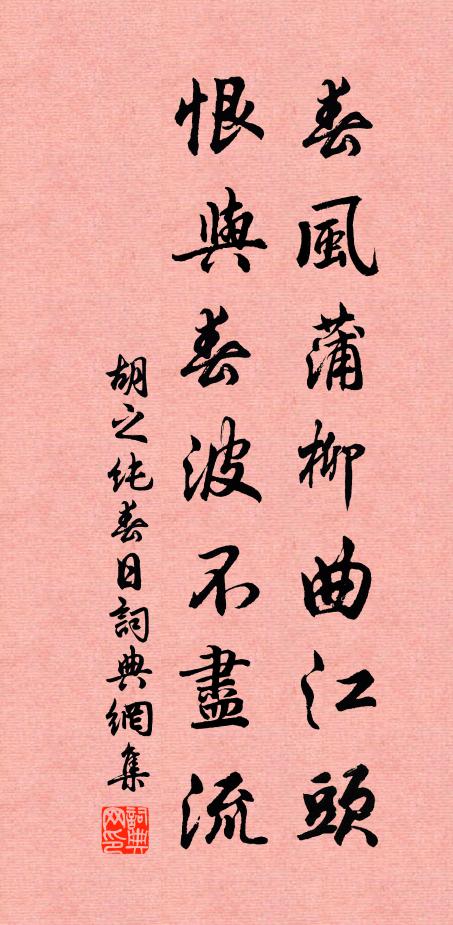 春風蒲柳曲江頭
恨與春波不盡流
胡之純春日詞典網集
詞典网印